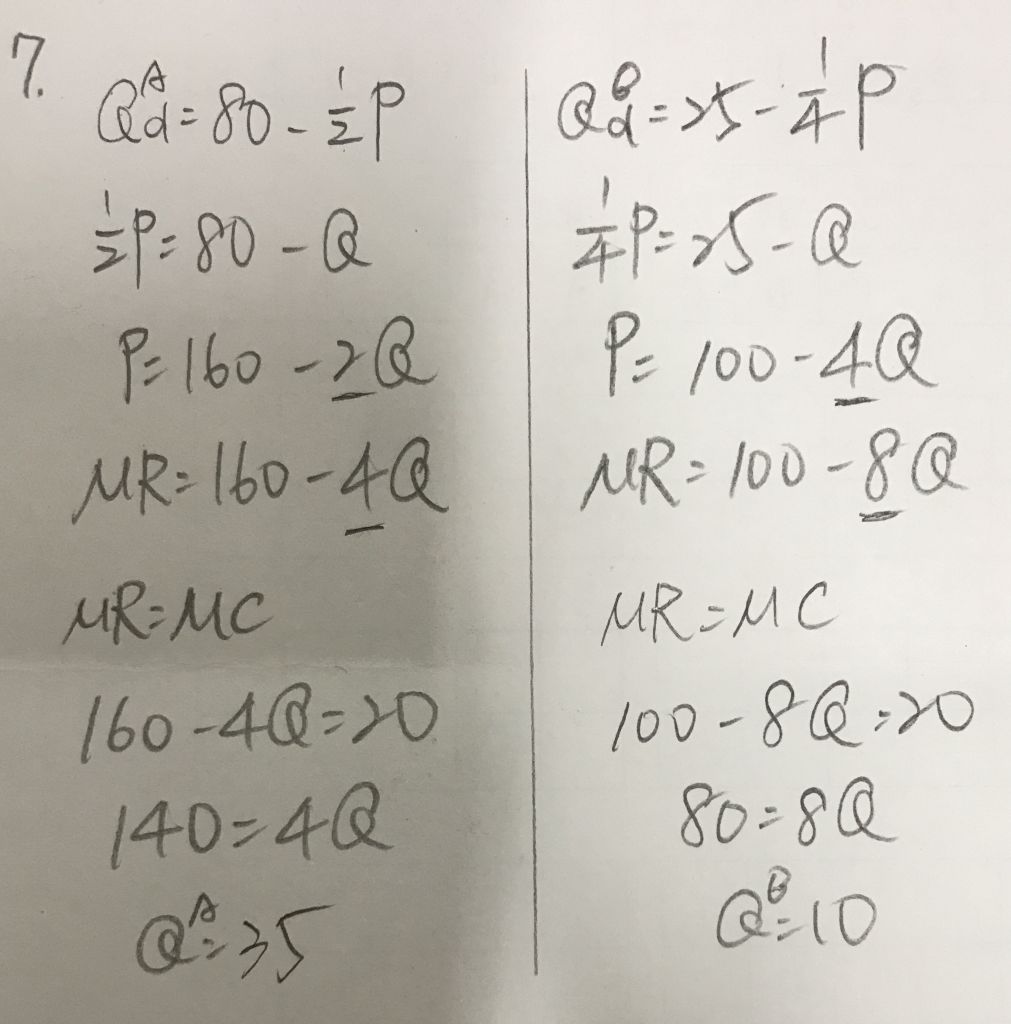 7.
Q_d^A = 80 - 1/2 P
1/2 P = 80 - Q
P = 160 - 2Q
MR = 160 - 4Q
MR = MC
160 - 4Q = 20
140 = 4Q
Q^A = 35
Q_d^B = 25 - 1/4 P
1/4 P = 25 - Q
P = 100 - 4Q
MR = 100 - 8Q
MR = MC
100 - 8Q = 20
80 = 8Q
Q^B = 10